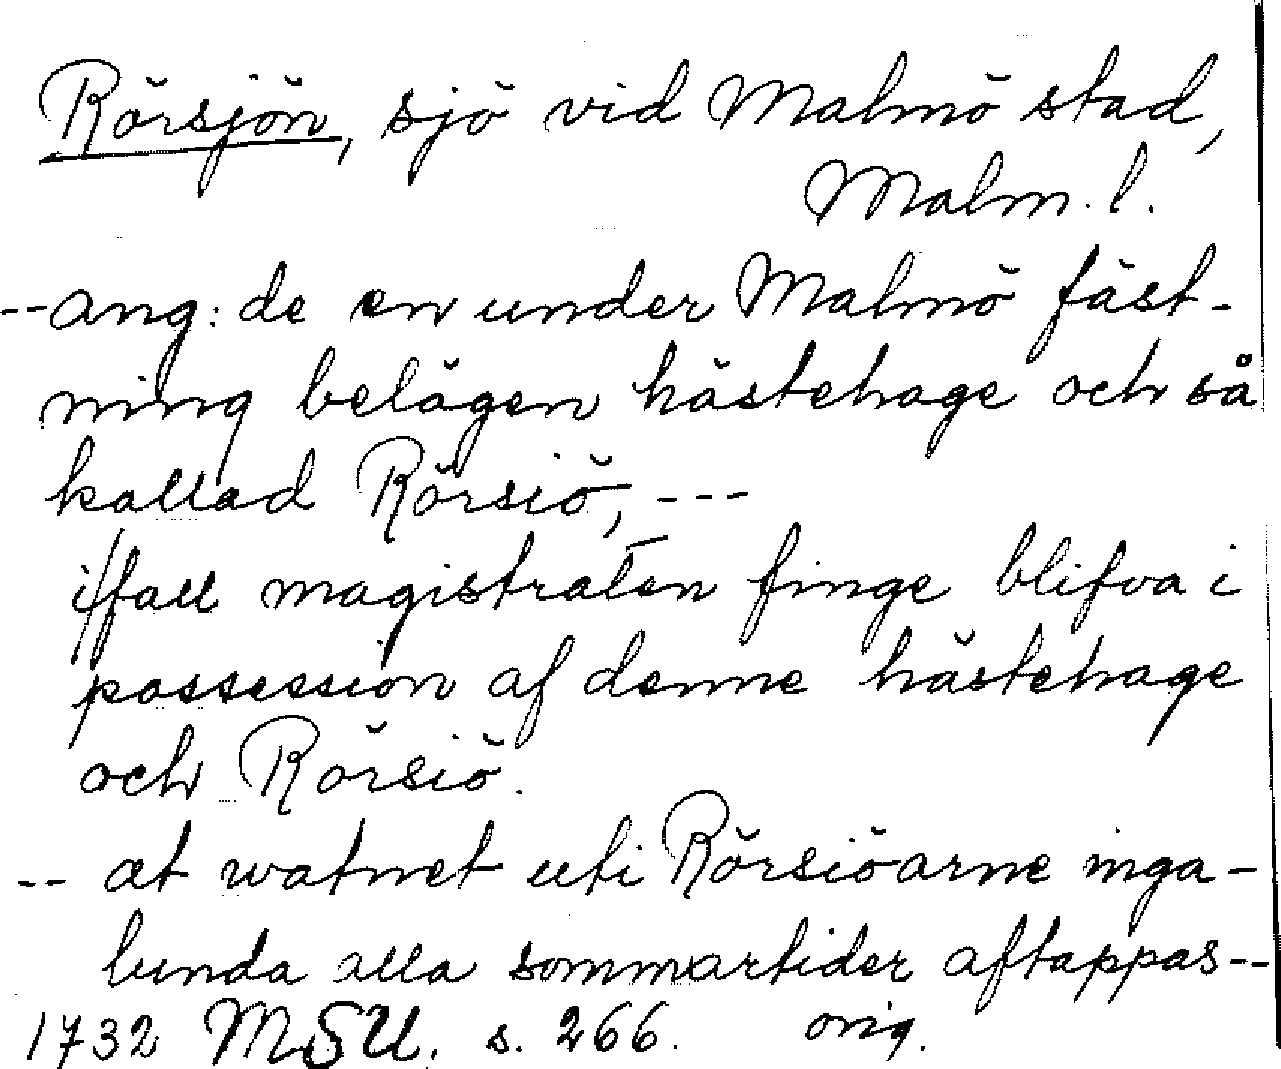 Rörsjön, sjö vid Malmö stad,
Malm. l.
-- ang: de en under Malmö fäst-
ning belägen hästehage och så
kallad Rörsiö, ---
iffall magistraten finge blifva i
possession af denne hästehage
och Rörsiö.
-- at watnet uti Rörsiöarne inga-
lunda alla sommartider aftappas --
1732 MSU. s. 266. orig.